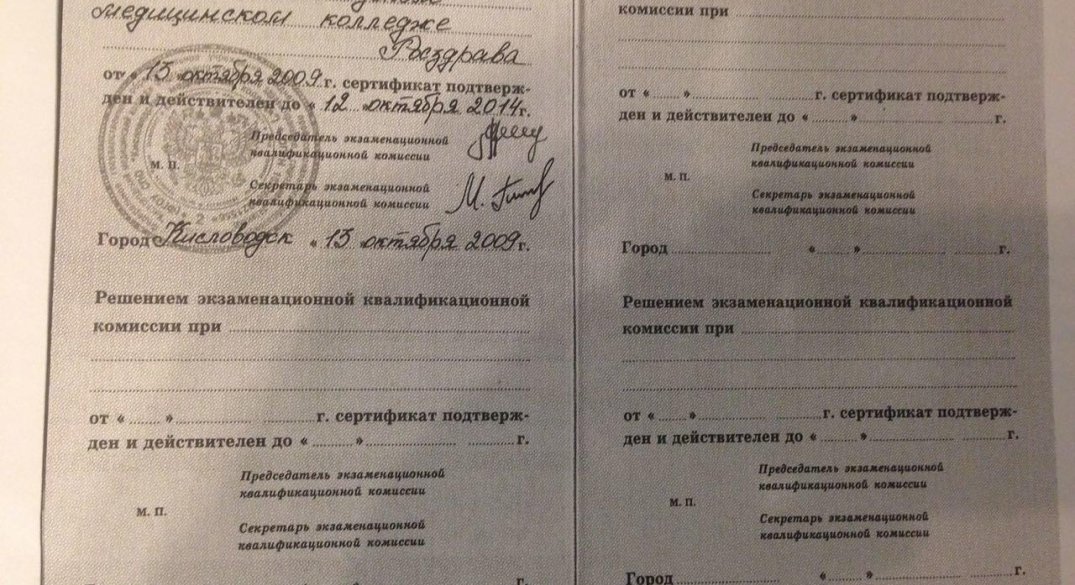 медицинском колледже
Росздрава
от « 13 октября 2009 г. сертификат подтверж-
ден и действителен до « 12 октября 2014 г.
Председатель экзаменационной
квалификационной комиссии
М. П.
Секретарь экзаменационной
квалификационной комиссии
Город Кисловодск « 13 октября 2009 г.
Решением экзаменационной квалификационной
комиссии при
от « » г. сертификат подтверж-
ден и действителен до « » г.
Председатель экзаменационной
квалификационной комиссии
М. П.
Секретарь экзаменационной
квалификационной комиссии
Город « » г.
комиссии при
от « » г. сертификат подтверж-
ден и действителен до « » г.
Председатель экзаменационной
квалификационной комиссии
М. П.
Секретарь экзаменационной
квалификационной комиссии
Город « » г.
Решением экзаменационной квалификационной
комиссии при
от « » г. сертификат подтверж-
ден и действителен до « » г.
Председатель экзаменационной
квалификационной комиссии
М. П.
Секретарь экзаменационной
квалификационной комиссии
Город « » г.